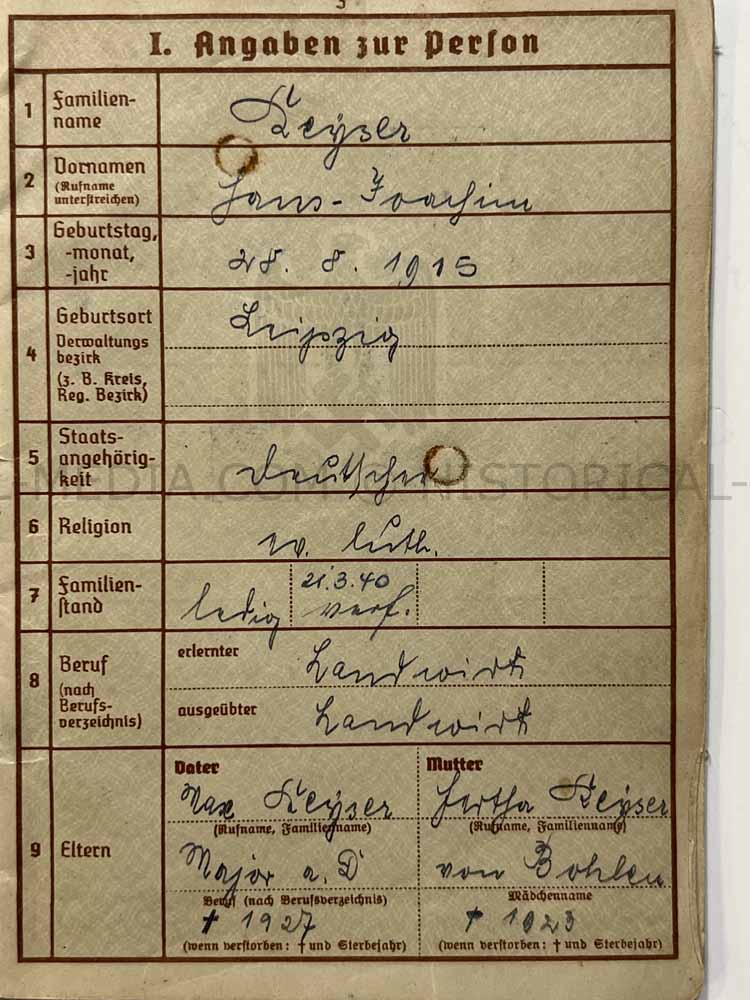 3
I. Angaben zur Person
1
Familien-
name
Keyser
2
Vornamen
(Rufname
unterstreichen)
Hans-Joachim
3
Geburtstag,
-monat,
-jahr
28. 8. 1915
4
Geburtsort
Verwaltungs
bezirk
(z. B. Kreis,
Reg. Bezirk)
Leipzig
5
Staats-
angehörig-
keit
Deutscher
-MEDIA.COM HISTORICAL-
6
Religion
ev. luth.
7
Familien-
stand
ledig
21.3.40
verh.
8
Beruf
(nach
Berufs-
verzeichnis)
erlernter
Landwirt
ausgeübter
Landwirt
9
Eltern
Vater
Max Keyser
(Rufname, Familienname)
Major a. D
Beruf (nach Berufsverzeichnis)
† 1927
(wenn verstorben: † und Sterbejahr)
Mutter
Hertha Keyser
(Rufname, Familienname)
von Bohlen
Mädchenname
† 1923
(wenn verstorben: † und Sterbejahr)